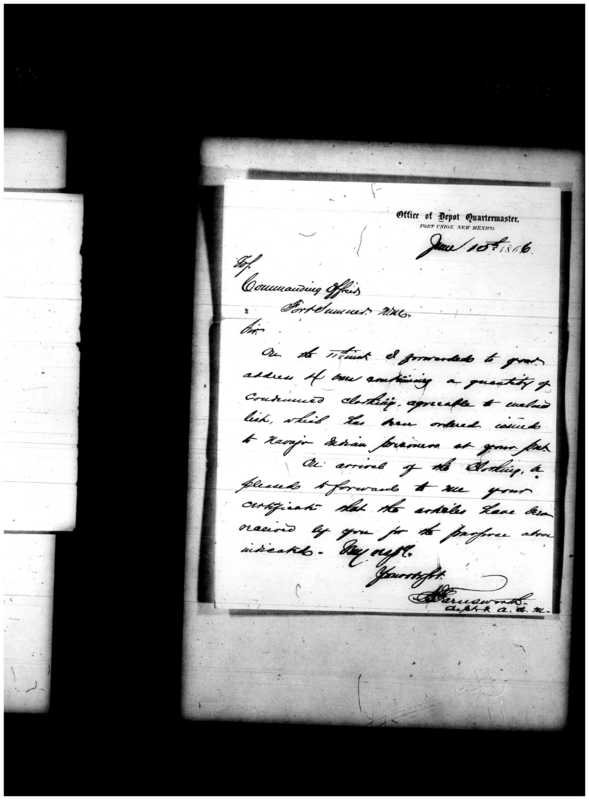 Office of Depot Quartermaster,
FORT UNION, NEW MEXICO
June 10th 1866.
To/
Commanding Officer
Fort Sumner N.M.
Sir
On the inst. I forwarded to your
address 4 containing a quantity of
condemned clothing, agreeable to enclosed
list, which has been ordered issued
to Navajo Indian prisoners at your post
On arrival of the Clothing, be
pleased to forward to me your
certificate that the articles have been
received by you for the purpose above
indicated. Very resp.
Your obt. svt.
Farnsworth
Capt. & A. Q. M.